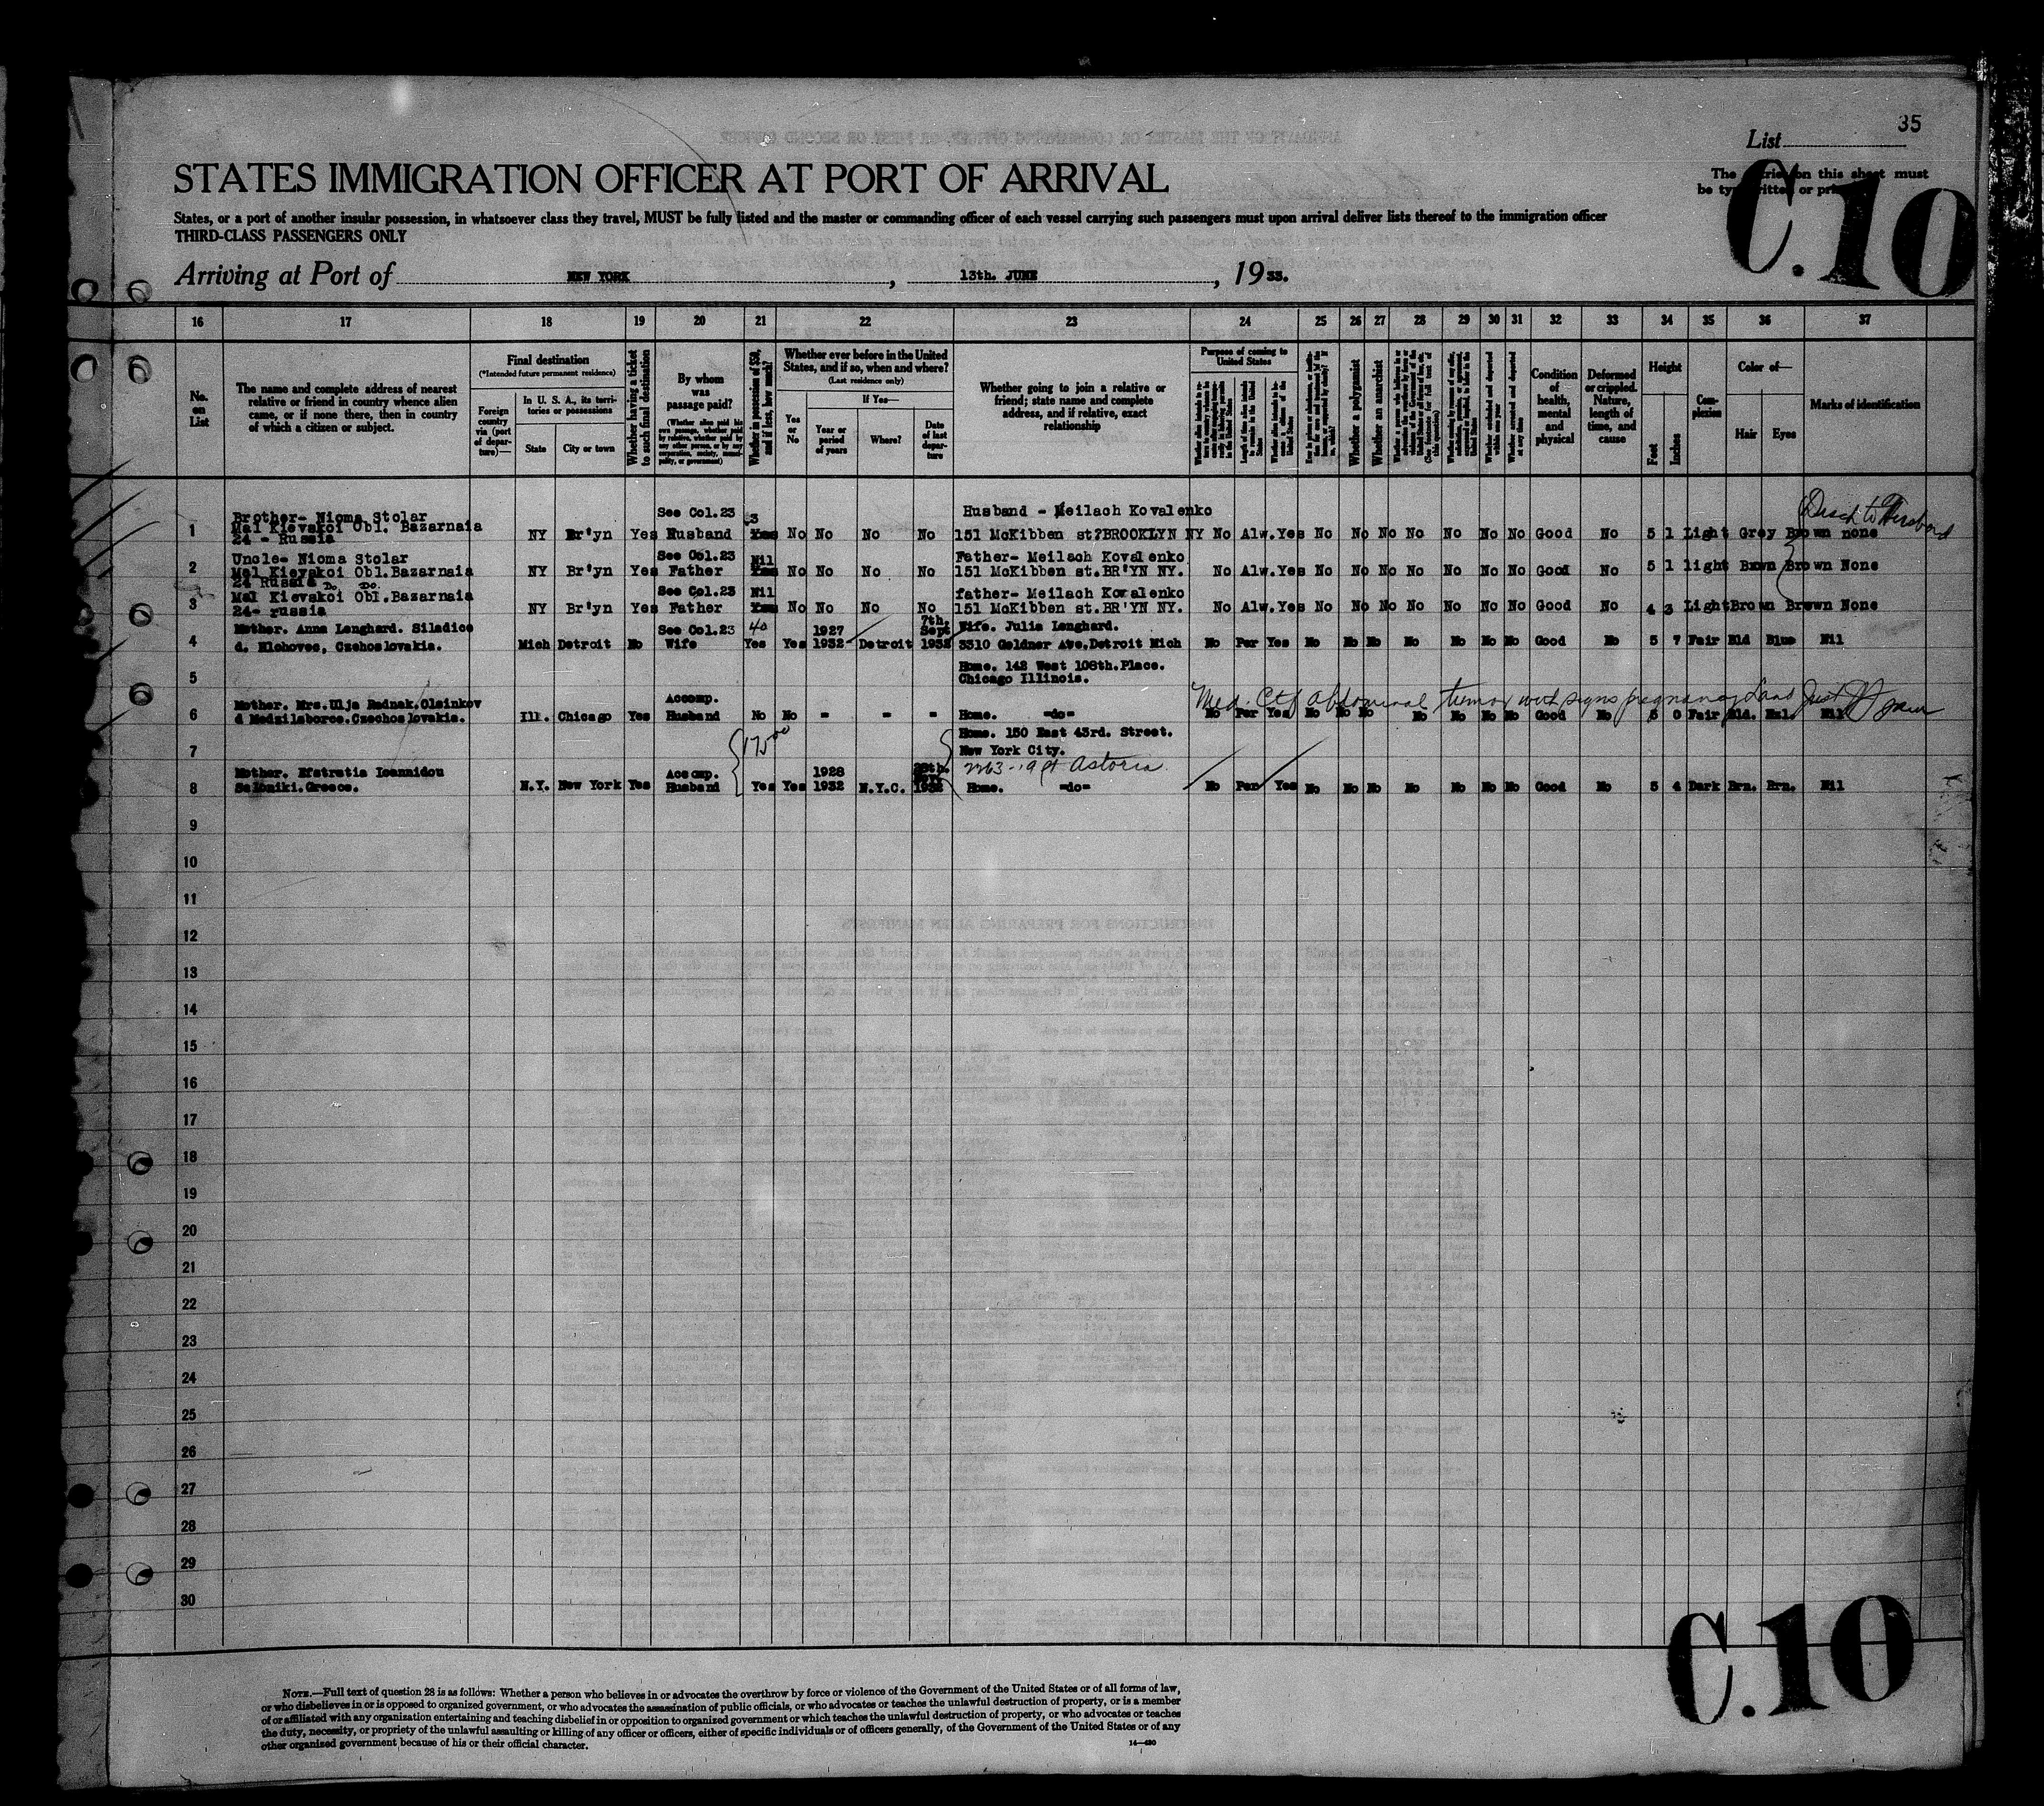 35
List
STATES IMMIGRATION OFFICER AT PORT OF ARRIVAL
The entries on this sheet must
be typewritten or printed
C.10
States, or a port of another insular possession, in whatsoever class they travel, MUST be fully listed and the master or commanding officer of each vessel carrying such passengers must upon arrival deliver lists thereof to the immigration officer
THIRD-CLASS PASSENGERS ONLY
Arriving at Port of NEW YORK, 13th. JUNE, 1933.
16 17 18 19 20 21 22 23 24 25 26 27 28 29 30 31 32 33 34 35 36 37
No. on List
The name and complete address of nearest relative or friend in country whence alien came, or if none there, then in country of which a citizen or subject.
Final destination
(*Intended future permanent residence)
Foreign country via (port of departure)—
In U. S. A., its territories or possessions
State
City or town
Whether having a ticket to such final destination
By whom was passage paid?
(Whether alien paid his own passage, whether paid by relative, whether paid by any other person, or by any corporation, society, municipality, or government)
Whether in possession of $50, and if less, how much?
Whether ever before in the United States, and if so, when and where?
(Last residence only)
Yes or No
If Yes—
Year or period of years
Where?
Date of last departure
Whether going to join a relative or friend; state name and complete address, and if relative, exact relationship
Purpose of coming to United States
Length of time alien intends to remain in the United States
Whether a polygamist
Whether an anarchist
Whether excluded and deported within one year
Whether arrested and deported at any time
Condition of health, mental and physical
Deformed or crippled. Nature, length of time, and cause
Height
Feet
Inches
Complexion
Color of—
Hair
Eyes
Marks of identification
Disch to Husband
1 Brother- Nioma Stolar
Mal Kievakoi Obl. Bazarnaia
24 - Russia
NY Br'yn Yes See Col.23 Husband 3 Yes No No No No Husband - Meilach Kovalenko
151 McKibben st?BROOKLYN NY No Alw. Yes No No No No No No No Good No 5 1 Light Grey Brown none
2 Uncle- Nioma Stolar
Mal Kievakoi Obl.Bazarnaia
24 Russia
NY Br'yn Yes See Col.23 Father Nil Yes No No No No Father- Meilach Kovalenko
151 McKibben st.BR'YN NY. No Alw.Yes No No No No No No No Good No 5 1 light Brown Brown None
3 Do Do
Mal Kievakoi Obl.Bazarnaia
24- russia
NY Br'yn Yes See Col.23 Father Nil Yes No No No No father- Meilach Kovalenko
151 McKibben st.BR'YN NY. No Alw.Yes No No No No No No No Good No 4 3 Light Brown Brown None
4 Mother. Anna Lenghard. Siladice
d. Hlohovec, Czechoslovakia.
Mich Detroit No See Col.23 Wife 40 Yes Yes 1927 1932 Detroit 7th. Sept 1932 Wife. Julia Lenghard.
3310 Goldner Ave.Detroit Mich No Per Yes No No No No No No No Good No 5 7 Fair Bld Blue Nil
5 Home. 142 West 108th.Place.
Chicago Illinois.
Med. Ctf abdominal tumor with signs pregnancy
6 Mother. Mrs.Ulja Rednak.Olsinkov
d Medzilaborce.Czechoslovakia.
Ill. Chicago Yes Accomp. Husband No No - - - Home. -do- No Per Yes No No No No No No No Good No 5 0 Fair Bld. Hzl. Nil
7 Home. 150 East 43rd. Street.
New York City.
2263-19 st Astoria
8 Mother. Efstratia Ioannidou
Saloniki.Greece.
N.Y. New York Yes Accomp. Husband 175.00 Yes Yes 1928 1932 N.Y.C. 1932 Home. -do- No Per Yes No No No No No No No Good No 5 4 Dark Brn. Brn. Nil
9
10
11
12
13
14
15
16
17
18
19
20
21
22
23
24
25
26
27
28
29
30
C.10
NOTE.—Full text of question 28 is as follows: Whether a person who believes in or advocates the overthrow by force or violence of the Government of the United States or of all forms of law,
or who disbelieves in or is opposed to organized government, or who advocates the assassination of public officials, or who advocates or teaches the unlawful destruction of property, or is a member
of or affiliated with any organization entertaining and teaching disbelief in or opposition to organized government or which teaches the unlawful destruction of property, or who advocates or teaches
the duty, necessity, or propriety of the unlawful assaulting or killing of any officer or officers, either of specific individuals or of officers generally, of the Government of the United States or of any
other organized government because of his or their official character.
14—480